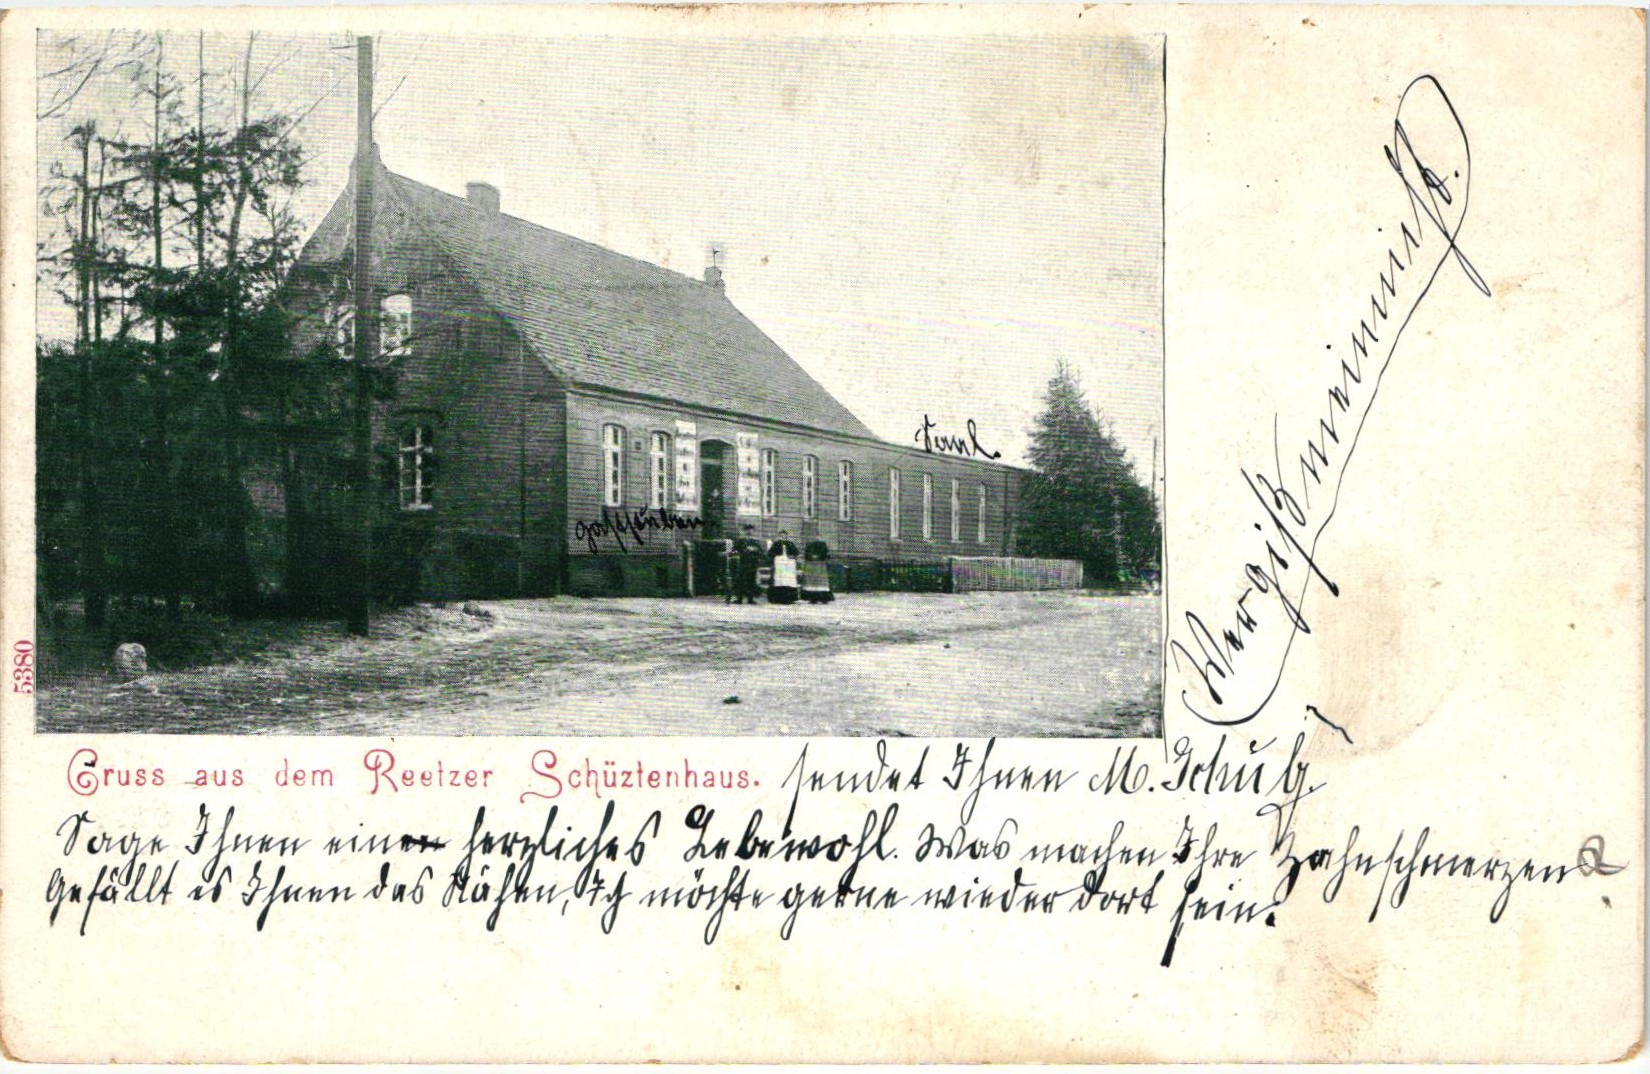 Saal.
Gaststuben
Vergißmeinnicht.
5380
Gruss aus dem Reetzer Schüztenhaus. sendet Ihnen M. Schulz.
Sage Ihnen einen herzliches Lebewohl. Was machen Ihre Zahnschmerzen?
Gefällt es Ihnen das Nähen, Ich möchte gerne wieder dort sein.